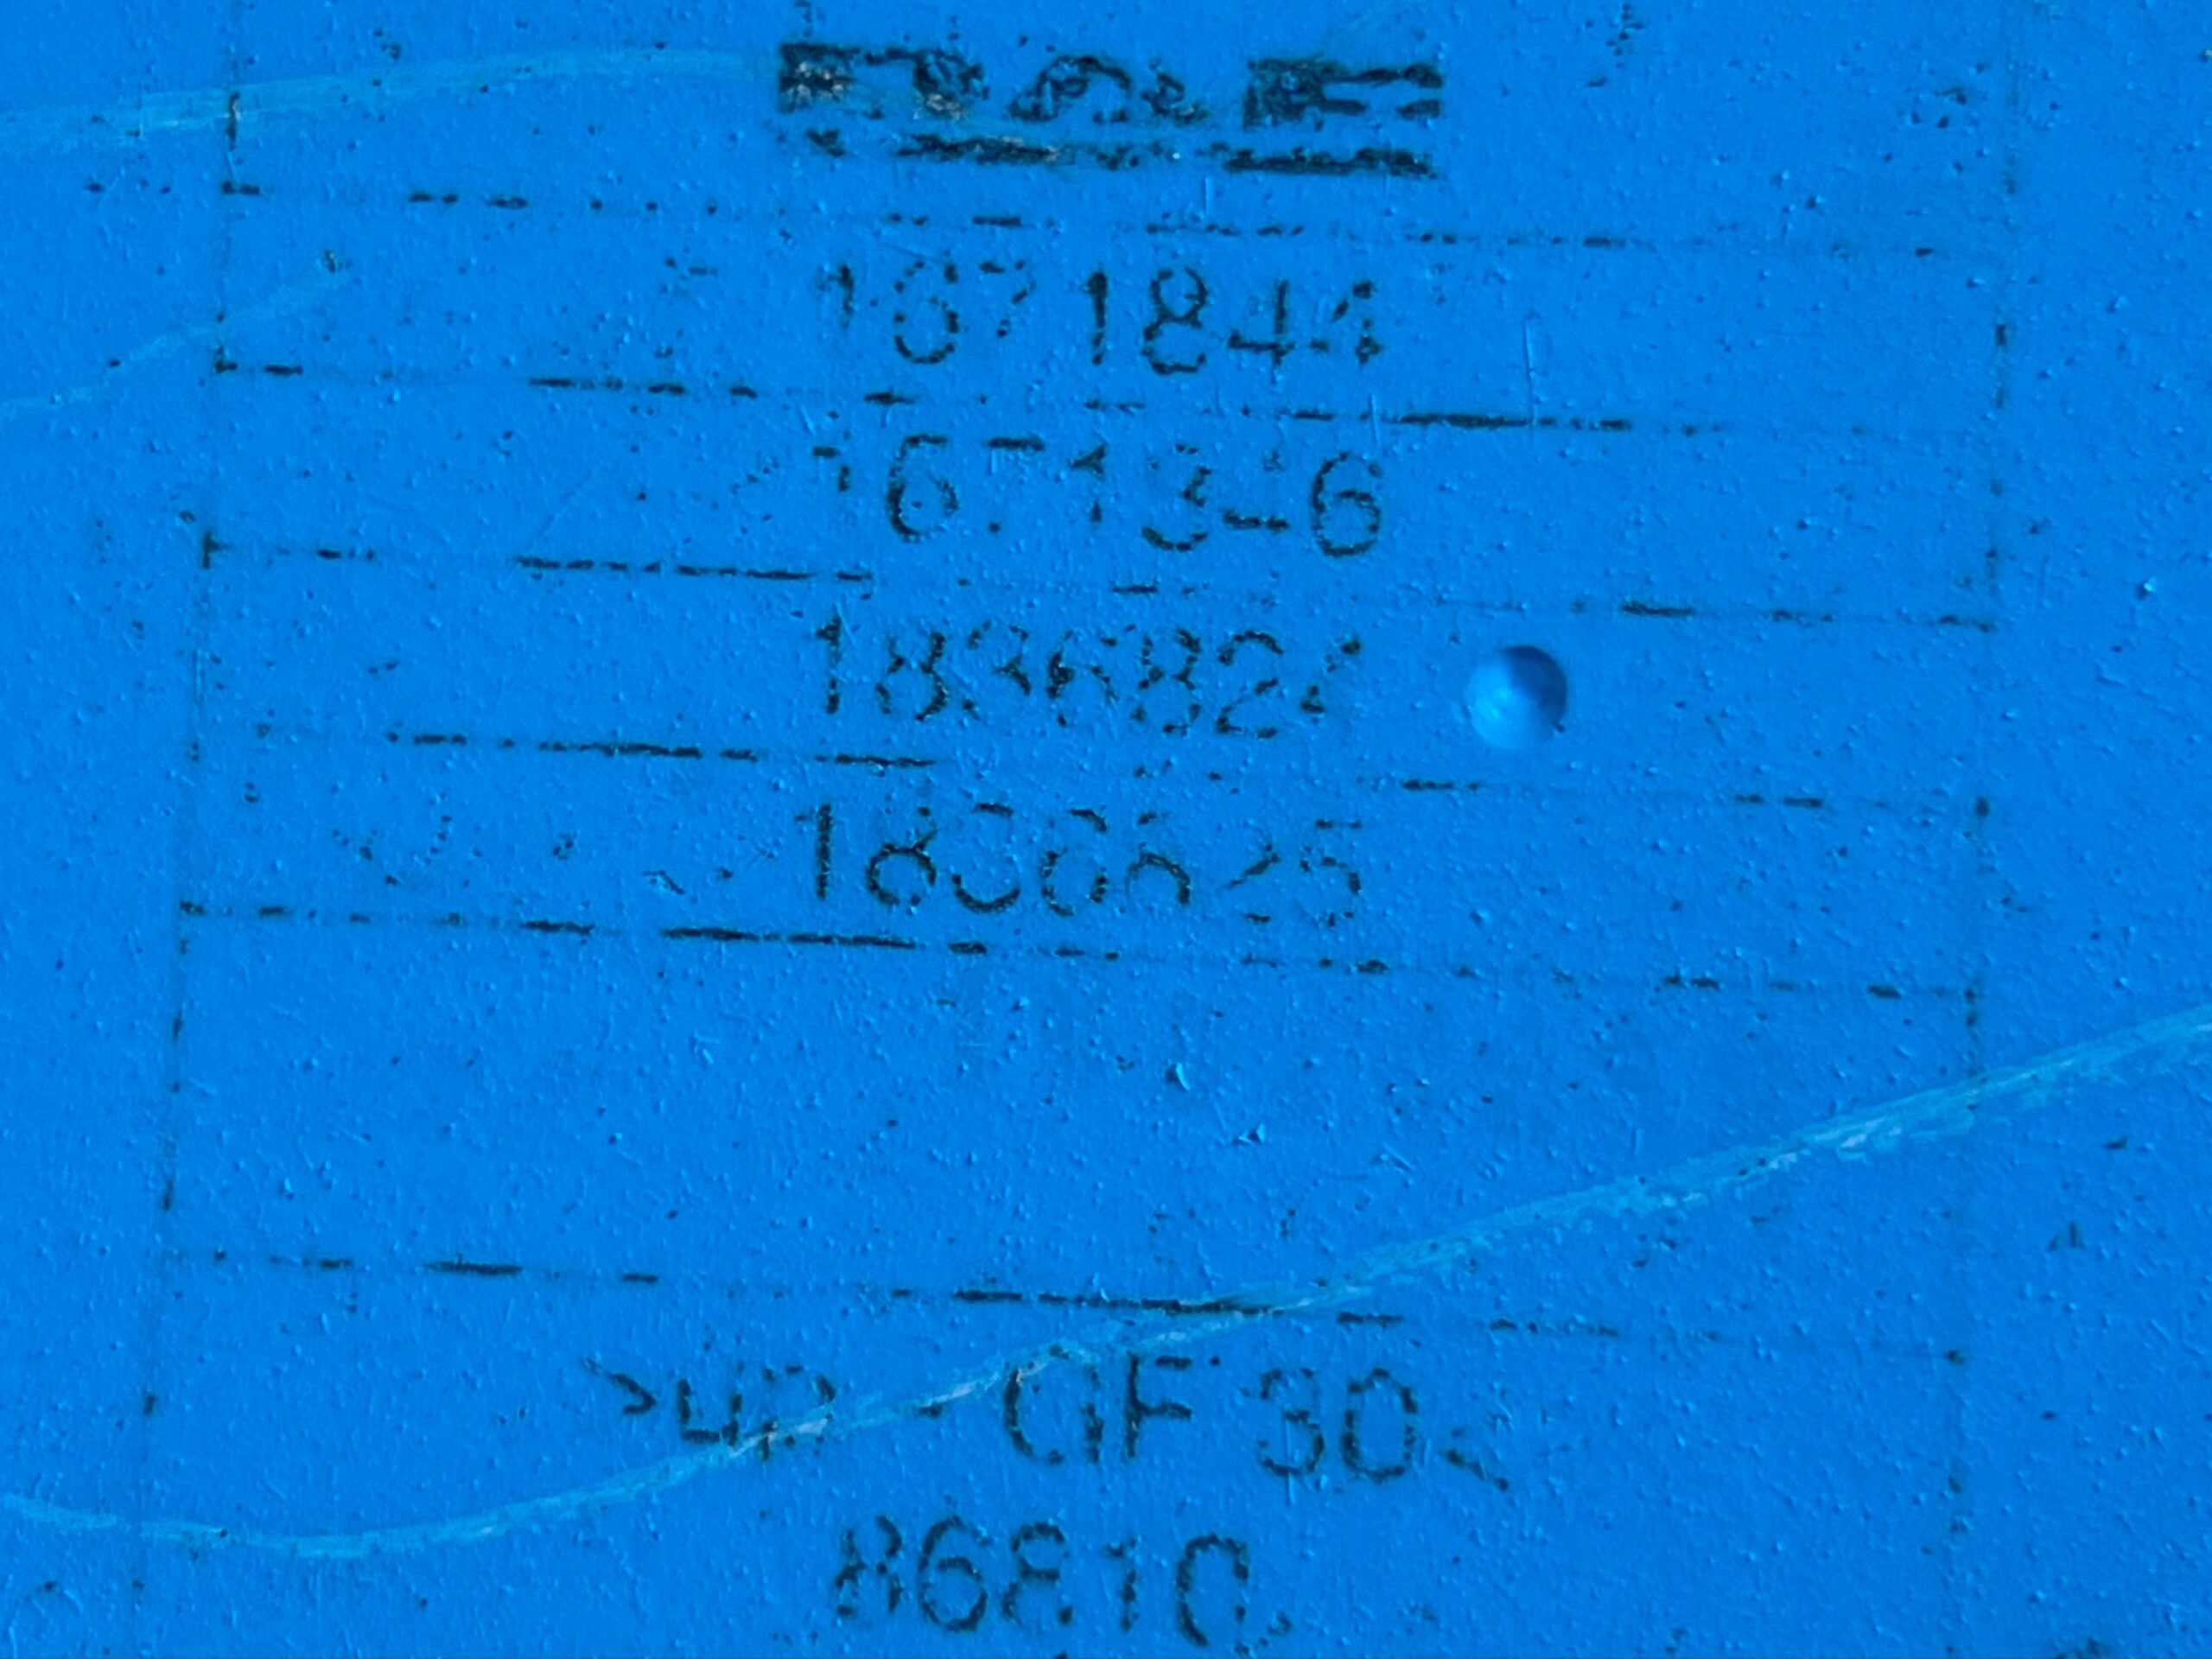 1671844
1671346
1836824
1836825
>UP - GF 30<
86810